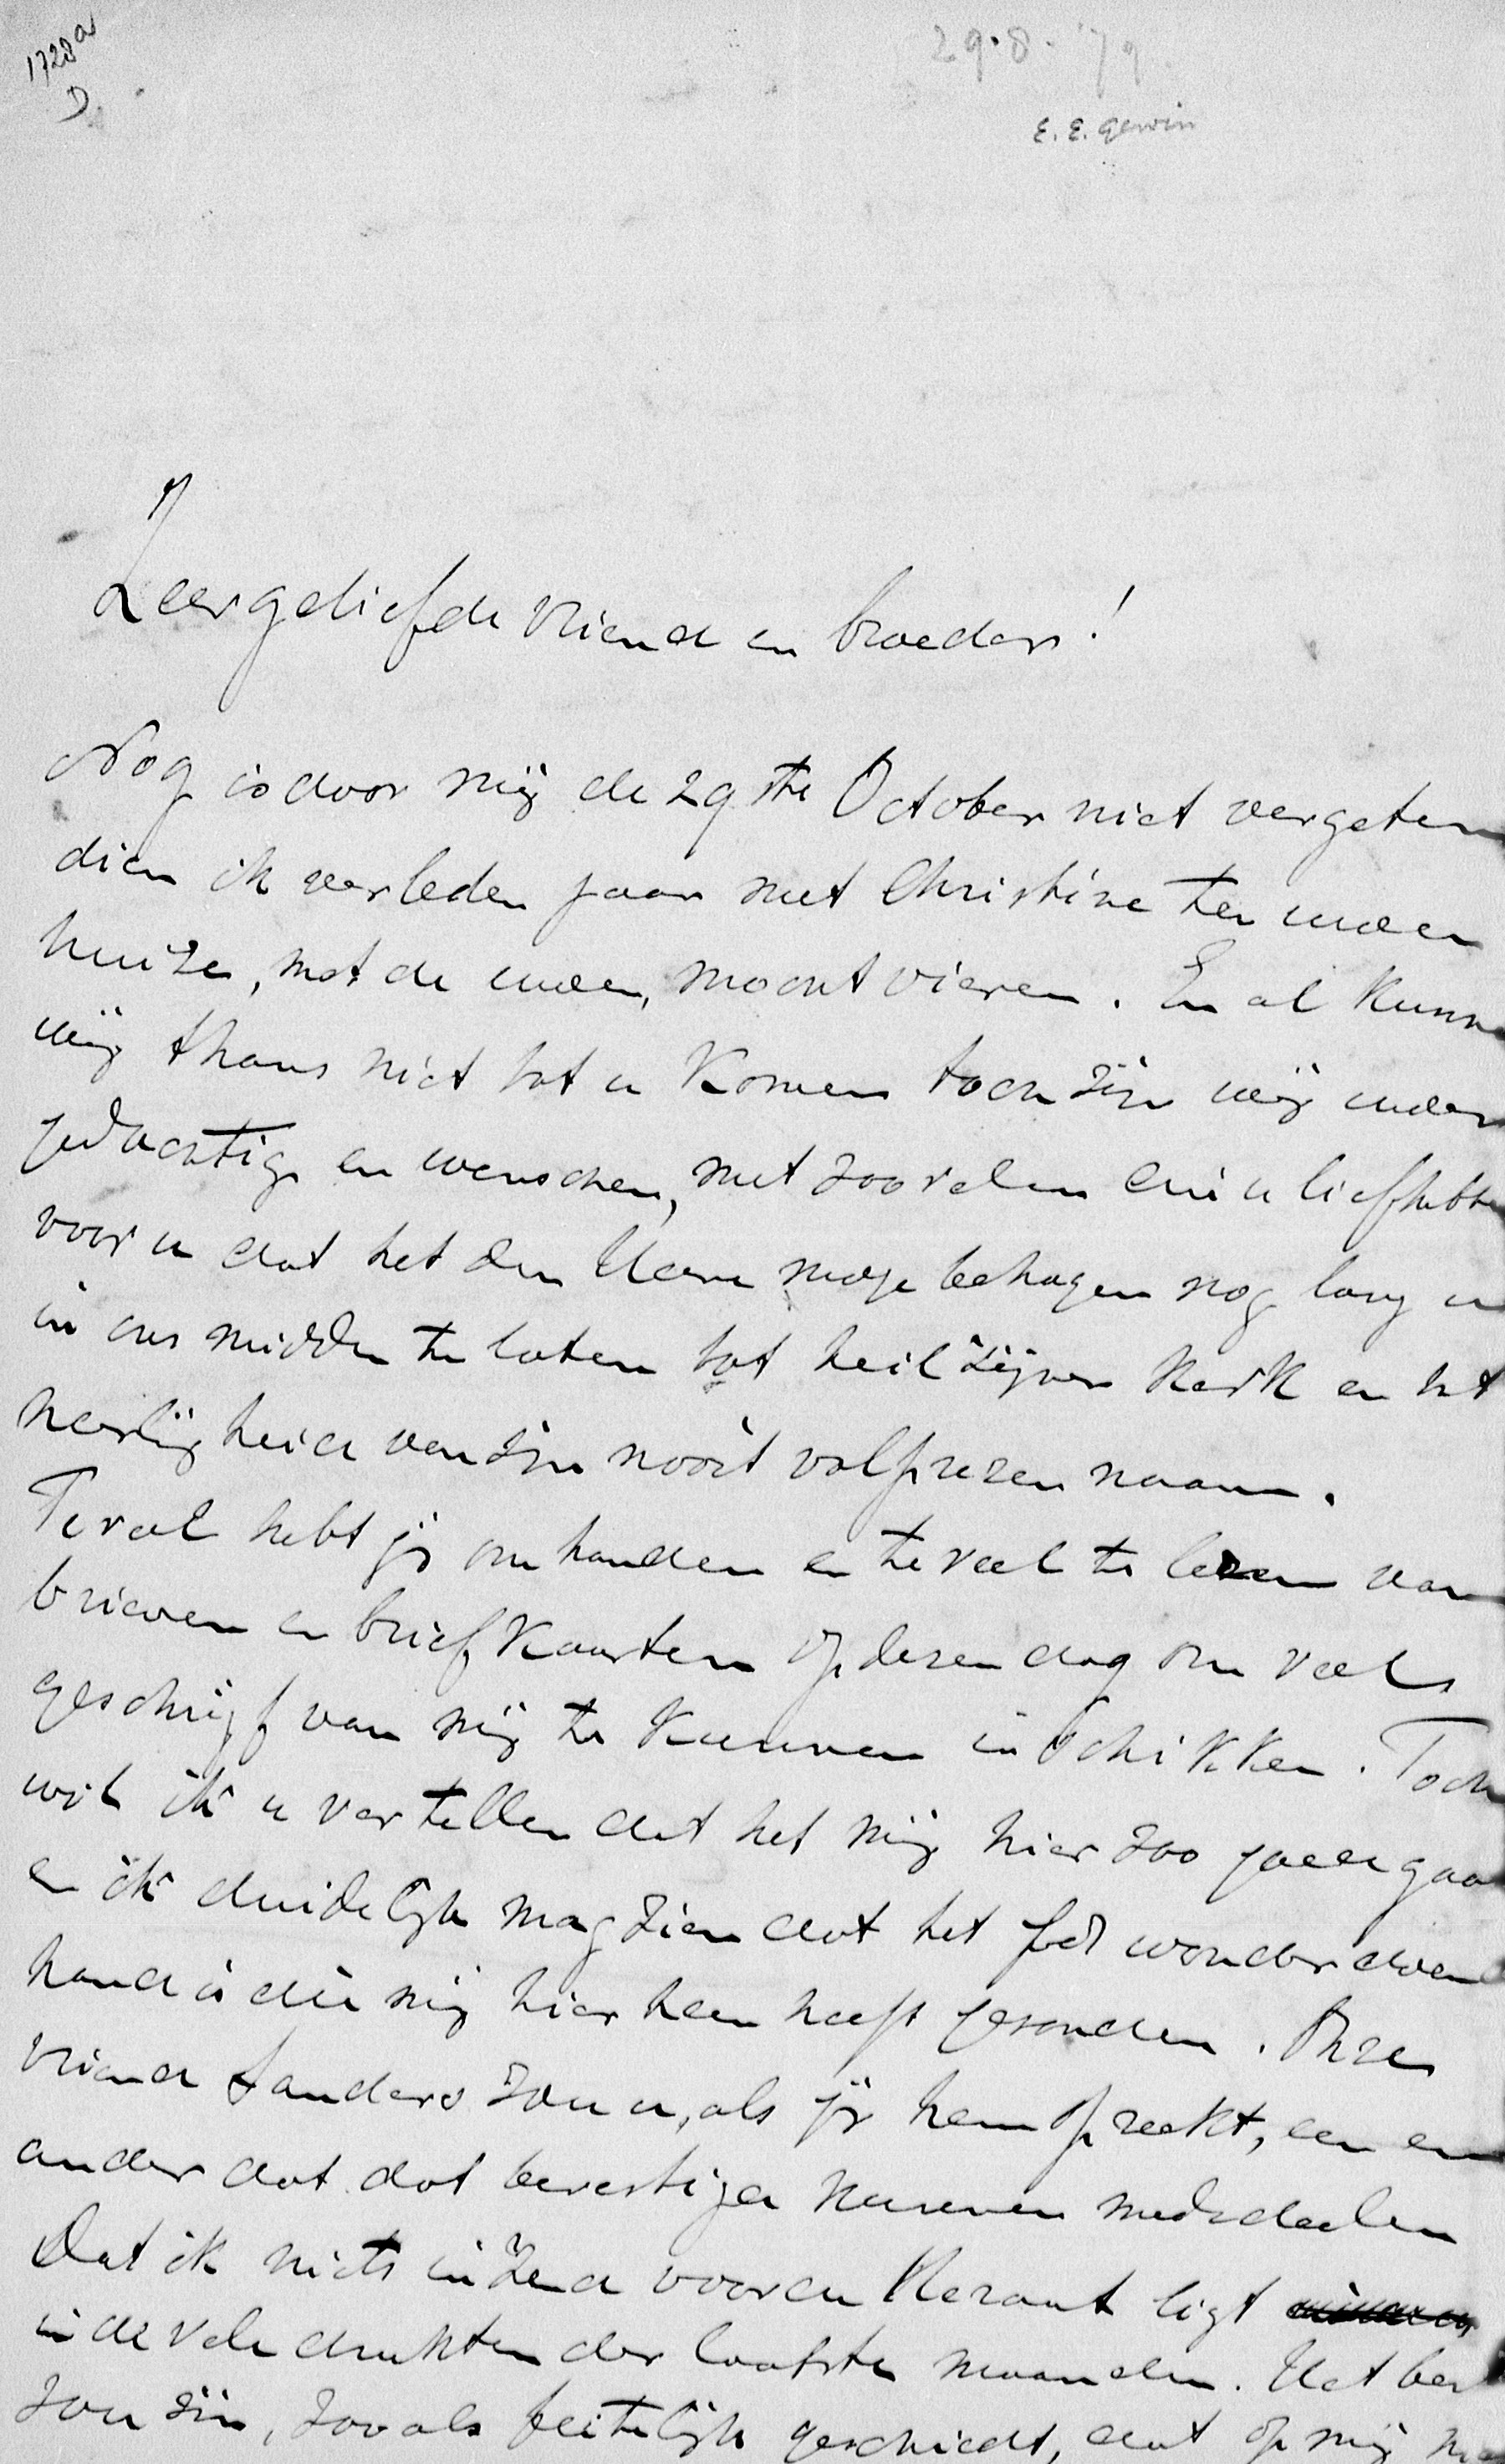 1728a
D.
29.8.'79.
E. E. Gewin
Zeer geliefde Vriend en broeder!
Nog is door mij de 29ste October niet vergeten
dien ik verleden jaar met Christine ten uwen
huize, met de uwen, mocht vieren. En al kunnen
wij thans niet tot u komen toch zijn wij uwer
gedachtig en wenschen, met zoovelen die u liefhebben
voor u dat het den Heere moge behagen nog lang u
in ons midden te laten tot heil zijner Kerk en tot
heerlijkheid van zijn nooit volprezen naam.
Te veel hebt gij om handen en te veel te lezen van
brieven en briefkaarten op dezen dag om veel
geschrijf van mij te kunnen inschikken. Toch
wil ik u vertellen dat het mij hier zoo goed gaat
en ik duidelijk mag zien dat het Gods wonderdoende
hand is die mij hier heen heeft gezonden. Onze
vriend Sanders zou u, als gij hem spreekt, een en
ander dat dat bevestigen kunnen mededeelen
Dat ik niets inzend voor den Heraut ligt
in de vele drukten der laatste maanden. Het best
zou zijn, zooals feitelijk geschiedt, dat op mij